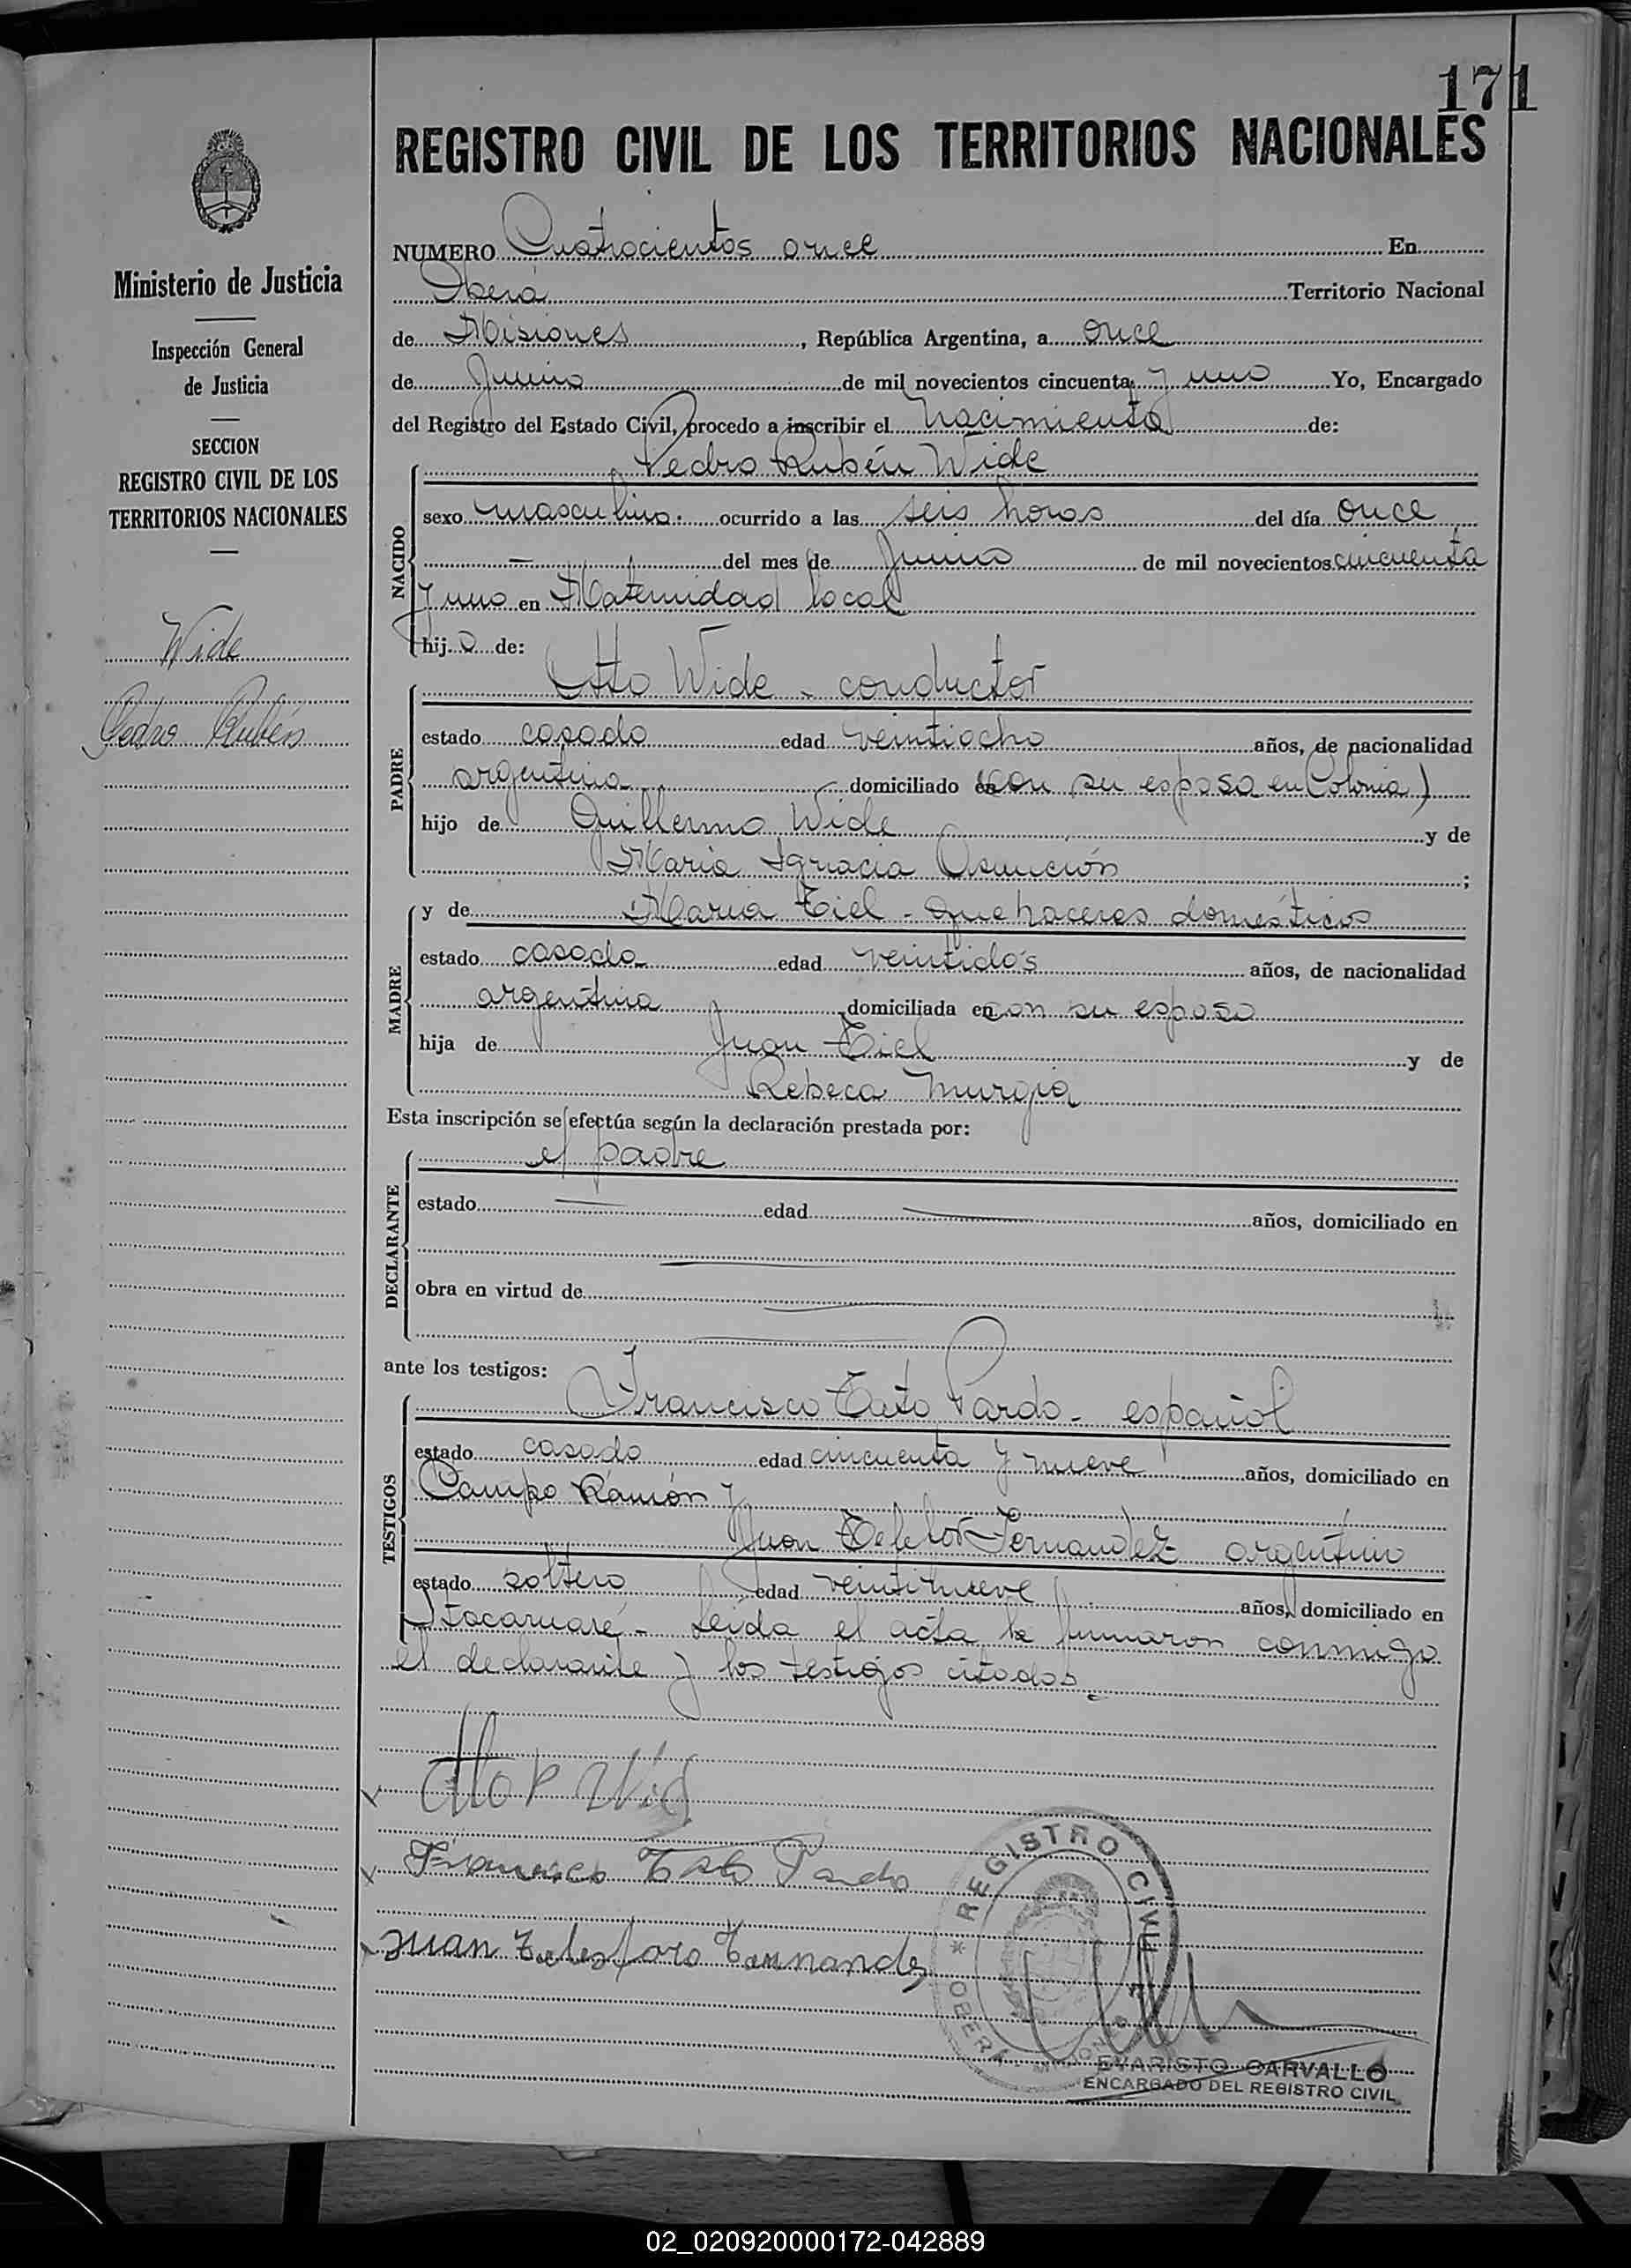 171
REGISTRO CIVIL DE LOS TERRITORIOS NACIONALES
Ministerio de Justicia
Inspección General
de Justicia
SECCION
REGISTRO CIVIL DE LOS
TERRITORIOS NACIONALES
Wide
Pedro Rubén
NUMERO Cuatrocientos once En
Oberá Territorio Nacional
de Misiones, República Argentina, a once
de Junio de mil novecientos cincuenta y uno Yo, Encargado
del Registro del Estado Civil, procedo a inscribir el nacimiento de:
Pedro Rubén Wide
NACIDO
sexo masculino. ocurrido a las seis horas del día once
— del mes de Junio de mil novecientos cincuenta
y uno en Maternidad local
hijo de:
PADRE
Otto Wide - conductor
estado casado edad veintiocho años, de nacionalidad
argentina domiciliado en con su esposa en Colonia)
hijo de Guillermo Wide y de
María Ignacia Asunción;
MADRE
y de María Tiel - quehaceres domésticos
estado casada edad veintidós años, de nacionalidad
argentina domiciliada en con su esposo
hija de Juan Tiel y de
Rebeca Murgia
Esta inscripción se efectúa según la declaración prestada por:
DECLARANTE
el padre
estado — edad — años, domiciliado en
—
obra en virtud de —
—
ante los testigos:
TESTIGOS
Francisco Tato Pardo - español
estado casado edad cincuenta y nueve años, domiciliado en
Campo Ramón y
Juan Fernandez argentino
estado soltero edad veintinueve años, domiciliado en
Itacaruaré - Leída el acta la firmaron conmigo
el declarante y los testigos citados.
Francisco Tato Pardo
Juan Telesforo Fernandez
REGISTRO CIVIL
* OBERA - MISIONES *
EVARISTO CARVALLO
ENCARGADO DEL REGISTRO CIVIL
02_020920000172-042889